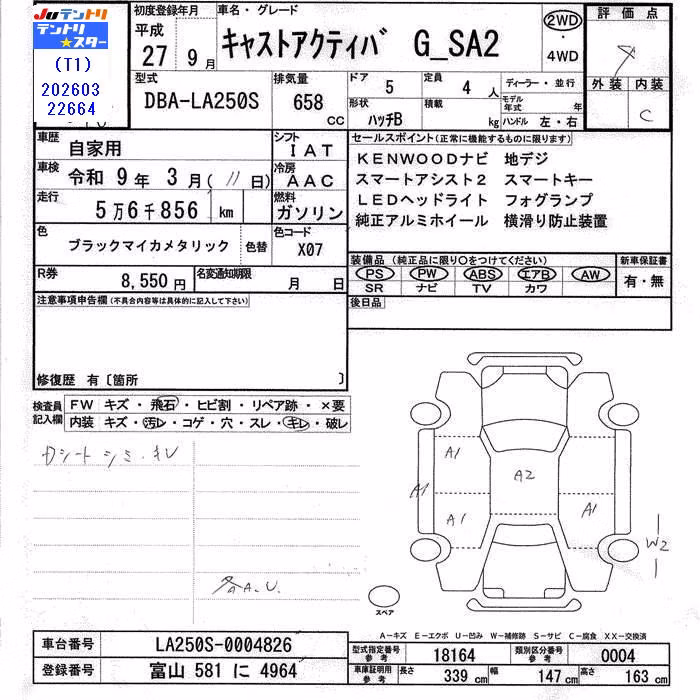 JUテントリ
テントリ
★スター
(T1)
202603
22664
初度登録年月
平成
27 9月
車名・グレード
キャストアクティバ G_SA2
2WD
・
4WD
評価点
外装 内装
C
型式
DBA-LA250S
排気量
658
CC
ドア 5
形状 ハッチB
定員 4人
積載 kg
ディーラー・並行
モデル年式 年
ハンドル 左・右
車歴 自家用
シフト IAT
車検 令和 9年 3月(11日)
冷房 AAC
走行 5万6千856 km
燃料 ガソリン
色 ブラックマイカメタリック 色替
色コード X07
R券 8,550円
名変通知期限 月 日
セールスポイント(正常に機能するものに限ります)
KENWOODナビ 地デジ
スマートアシスト2 スマートキー
LEDヘッドライト フォグランプ
純正アルミホイール 横滑り防止装置
装備品(純正品に限り○をつけてください)
PS PW ABS エアB AW
SR ナビ TV カワ
新車保証書
有・無
後日品
注意事項申告欄(不具合内容等は具体的に記入して下さい)
修復歴 有〔箇所 〕
検査員
記入欄
FW キズ・飛石・ヒビ割・リペア跡・×要
内装 キズ・汚レ・コゲ・穴・スレ・キレ・破レ
シート シミ・キレ
各A.U.
A1
A2
A1
A1
A1
W2
スペア
A-キズ E-エクボ U-凹み W-補修跡 S-サビ C-腐食 XX-交換済
車台番号 LA250S-0004826
登録番号 富山 581 に 4964
型式指定番号
参考
18164
類別区分番号
参考
0004
車庫証明用
参考
長さ 339 cm 幅 147 cm 高さ 163 cm